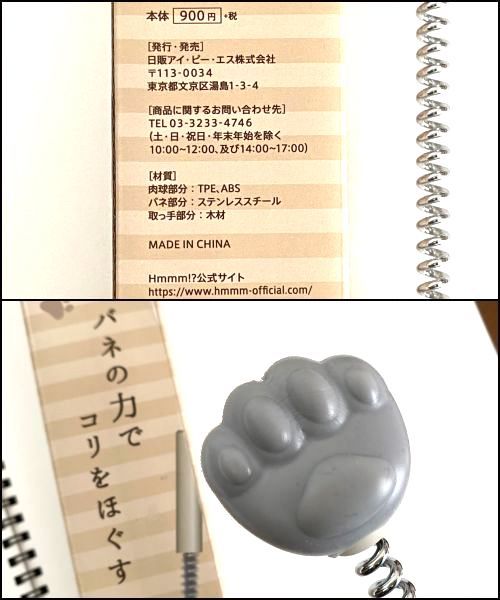 本体 900円 +税
[発行・発売]
日販アイ・ピー・エス株式会社
〒113-0034
東京都文京区湯島1-3-4
[商品に関するお問い合わせ先]
TEL 03-3233-4746
(土・日・祝日・年末年始を除く
10:00~12:00、及び14:00~17:00)
[材質]
肉球部分:TPE、ABS
バネ部分:ステンレススチール
取っ手部分:木材
MADE IN CHINA
Hmmm!?公式サイト
https://www.hmmm-official.com/
バネの力で
コリをほぐす